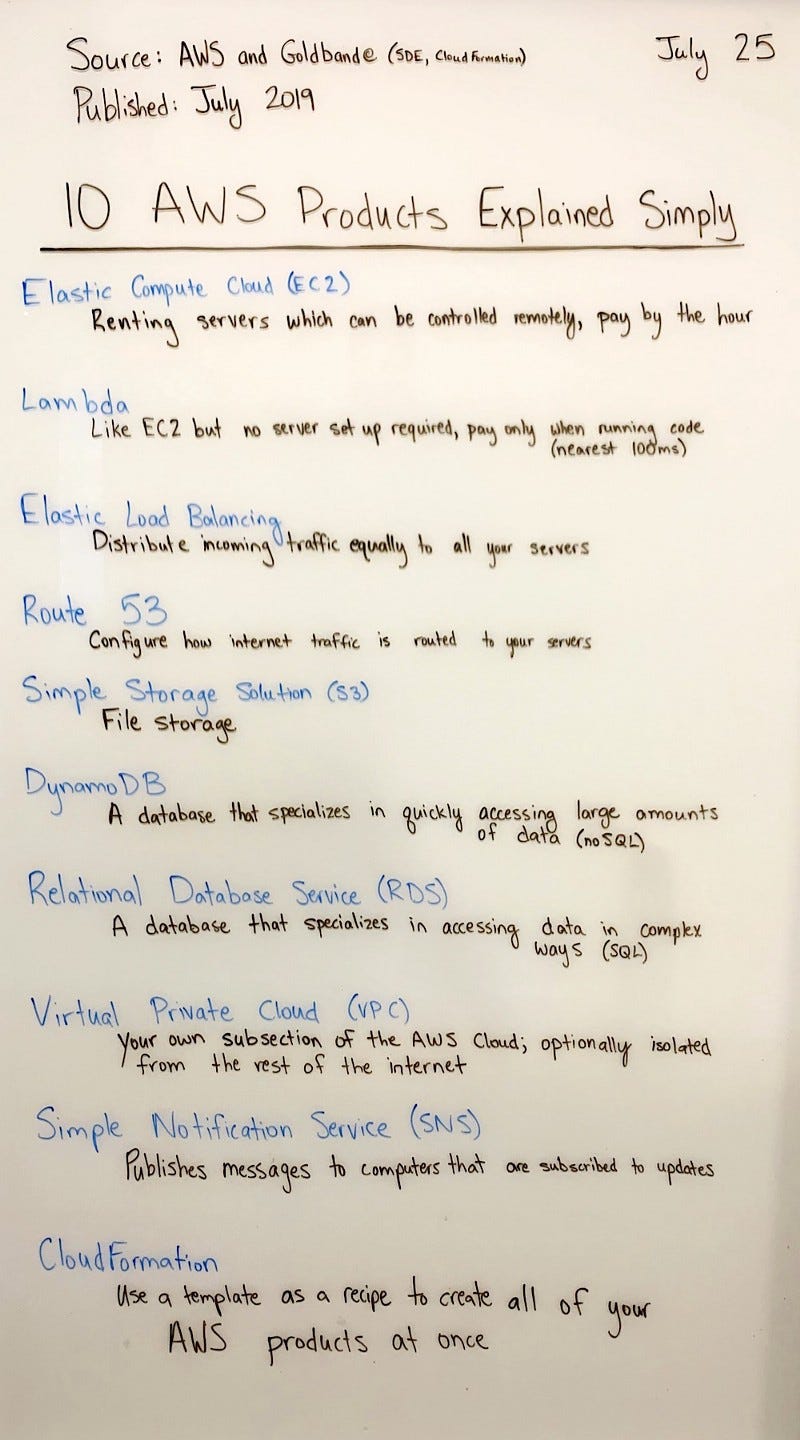 Source: AWS and Goldband@ (SDE, CloudFormation)
July 25
Published: July 2019
10 AWS Products Explained Simply
Elastic Compute Cloud (EC2)
Renting servers which can be controlled remotely, pay by the hour
Lambda
Like EC2 but no server set up required, pay only when running code
(nearest 100ms)
Elastic Load Balancing
Distribute incoming traffic equally to all your servers
Route 53
Configure how internet traffic is routed to your servers
Simple Storage Solution (S3)
File storage
DynamoDB
A database that specializes in quickly accessing large amounts
of data (noSQL)
Relational Database Service (RDS)
A database that specializes in accessing data in complex
ways (SQL)
Virtual Private Cloud (VPC)
Your own subsection of the AWS Cloud; optionally isolated
from the rest of the internet
Simple Notification Service (SNS)
Publishes messages to computers that are subscribed to updates
CloudFormation
Use a template as a recipe to create all of your
AWS products at once